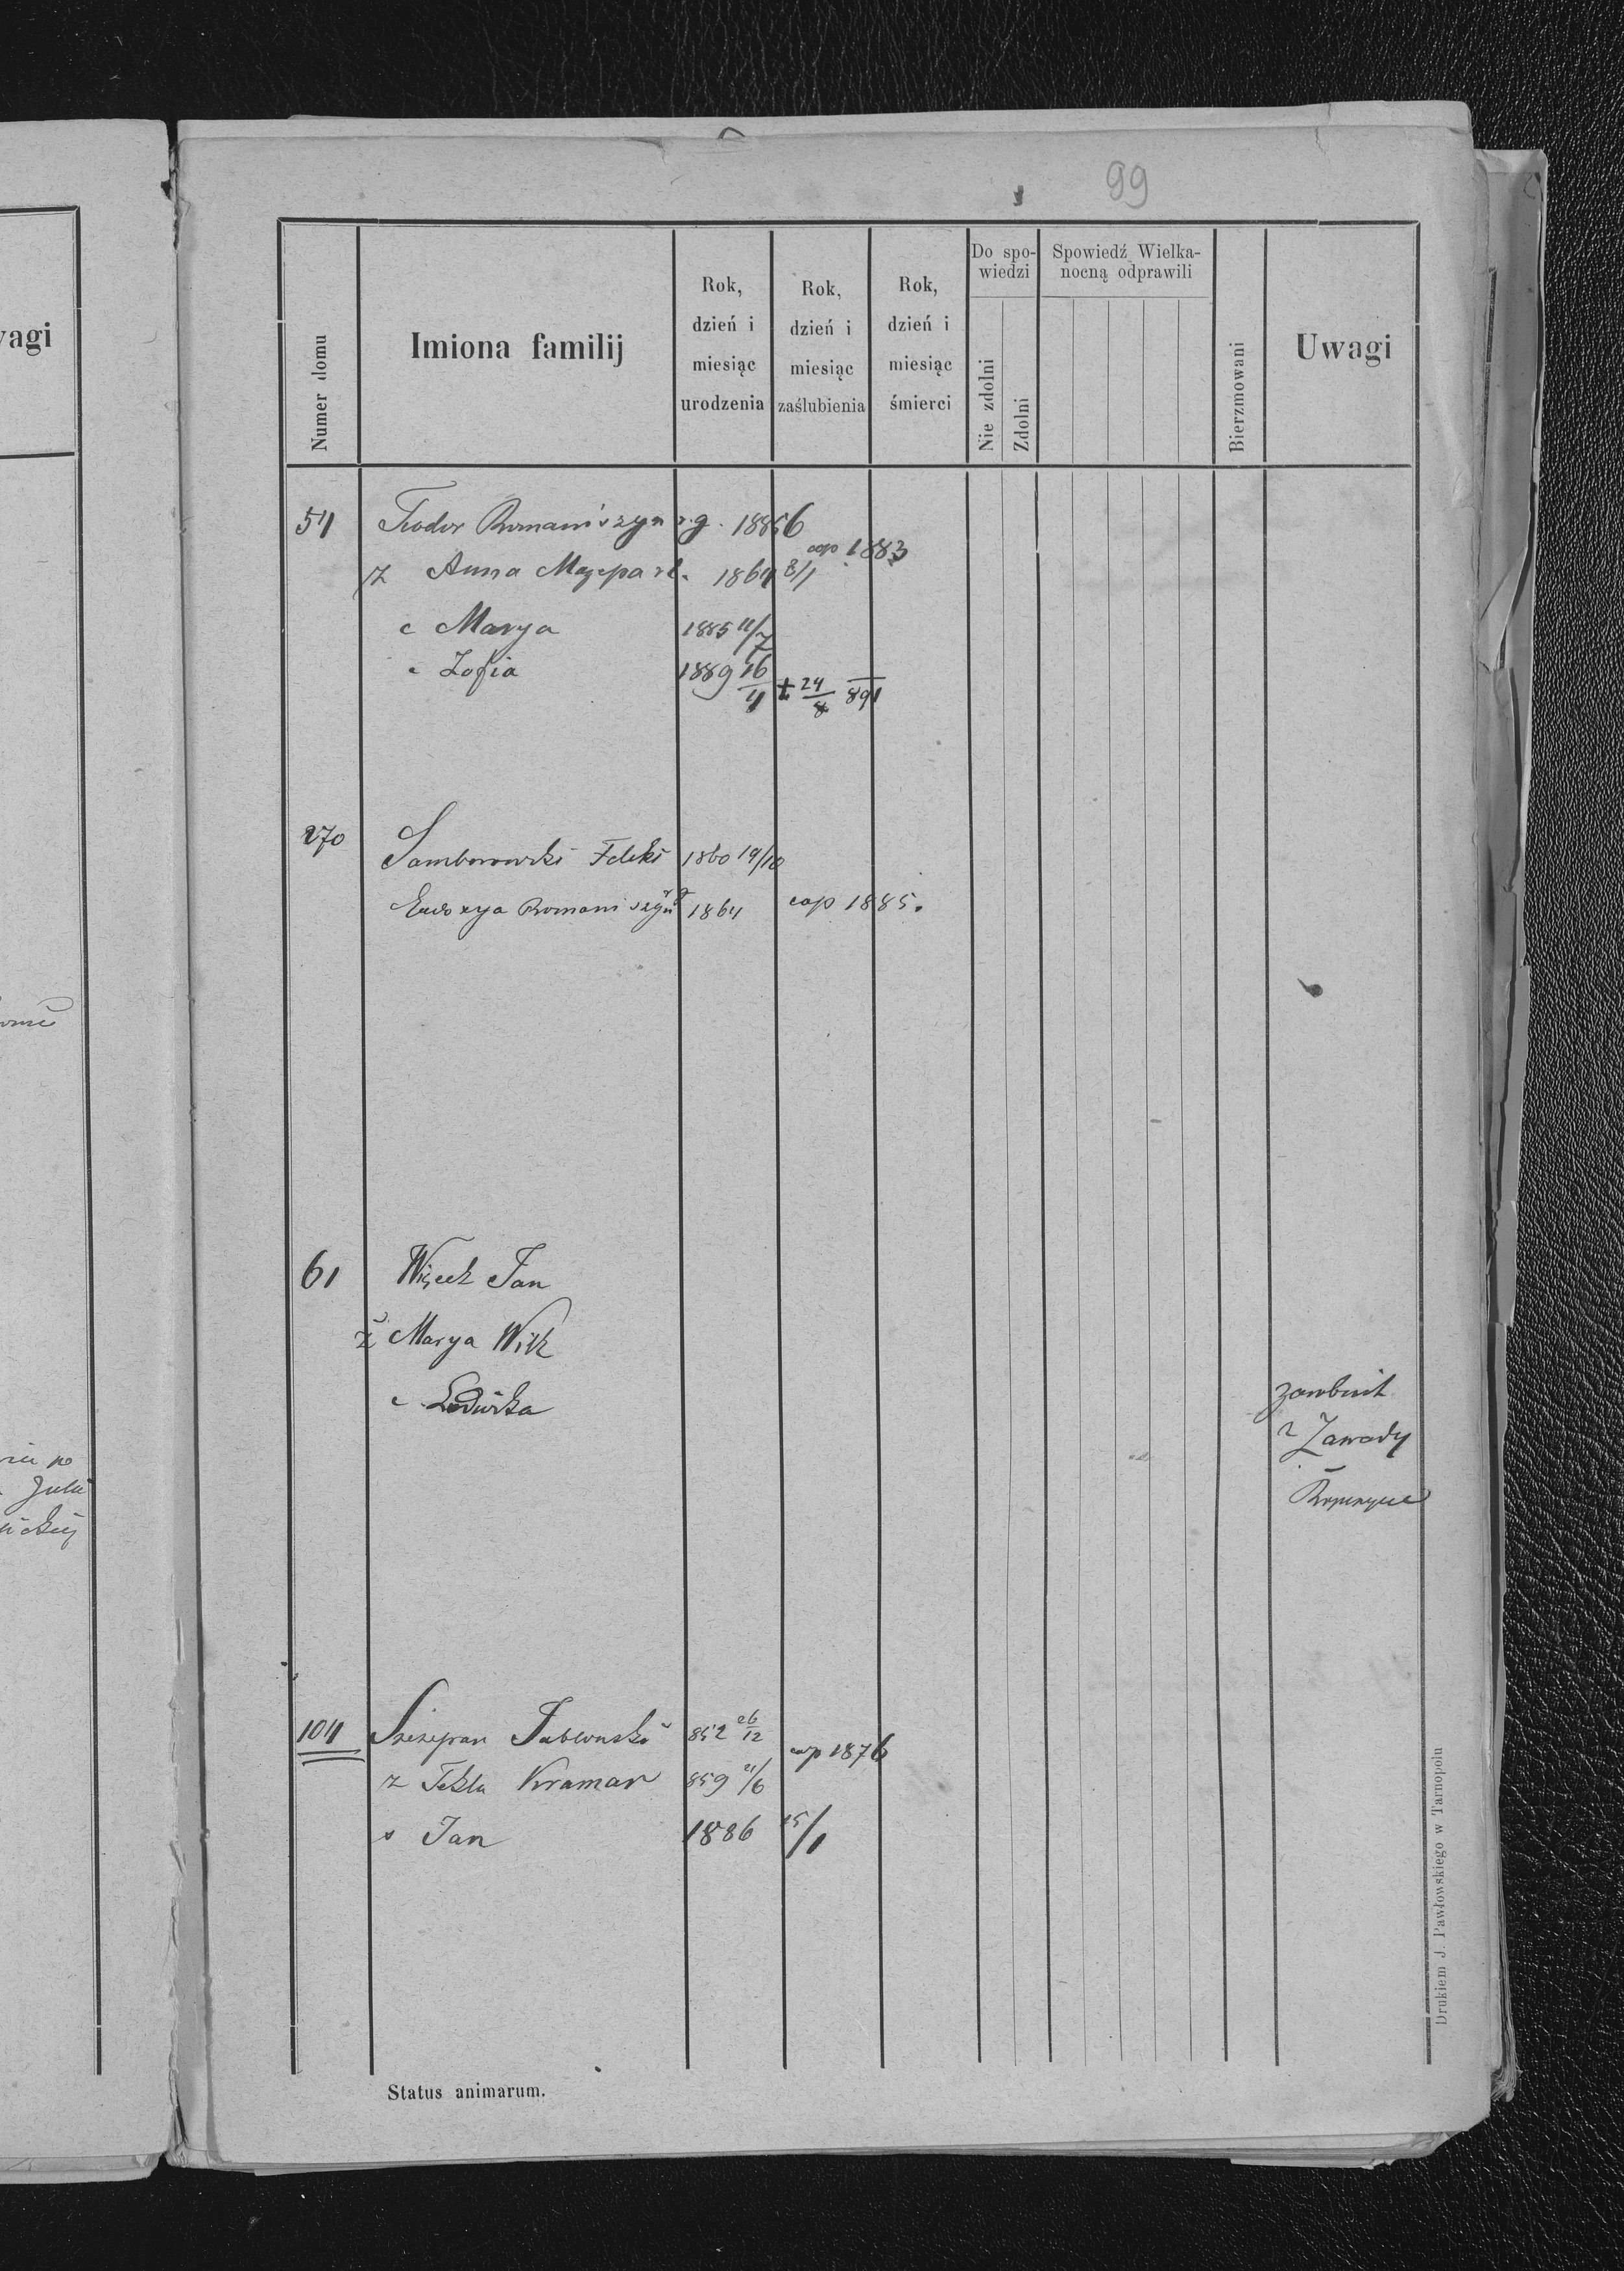 99
Numer domu
Imiona familij
Rok, dzień i miesiąc urodzenia
Rok, dzień i miesiąc zaślubienia
Rok, dzień i miesiąc śmierci
Do spowiedzi
Nie zdolni
Zdolni
Spowiedź Wielkanocną odprawili
Bierzmowani
Uwagi
54 Teodor Romaniszyn r.g. 1856
ż Anna Mazepa rl. 1864 8/1 cop 1883
c Marya 1885 11/7
c Zofia 1889 16/4 + 24/8 891
270 Samborowski Feliks 1860 19/10
Eudoxya Romaniszyn rg 1864 cop 1885.
61 Więcek Jan
ż Marya Wilk
c. Ludwika
z Zawady
104 Szczepan Jabłonski 852 26/12 cop 1876
ż Tekla Kramar 859 21/6
s Jan 1886 15/1
Status animarum.
Drukiem J. Pawłowskiego w Tarnopolu
vagi